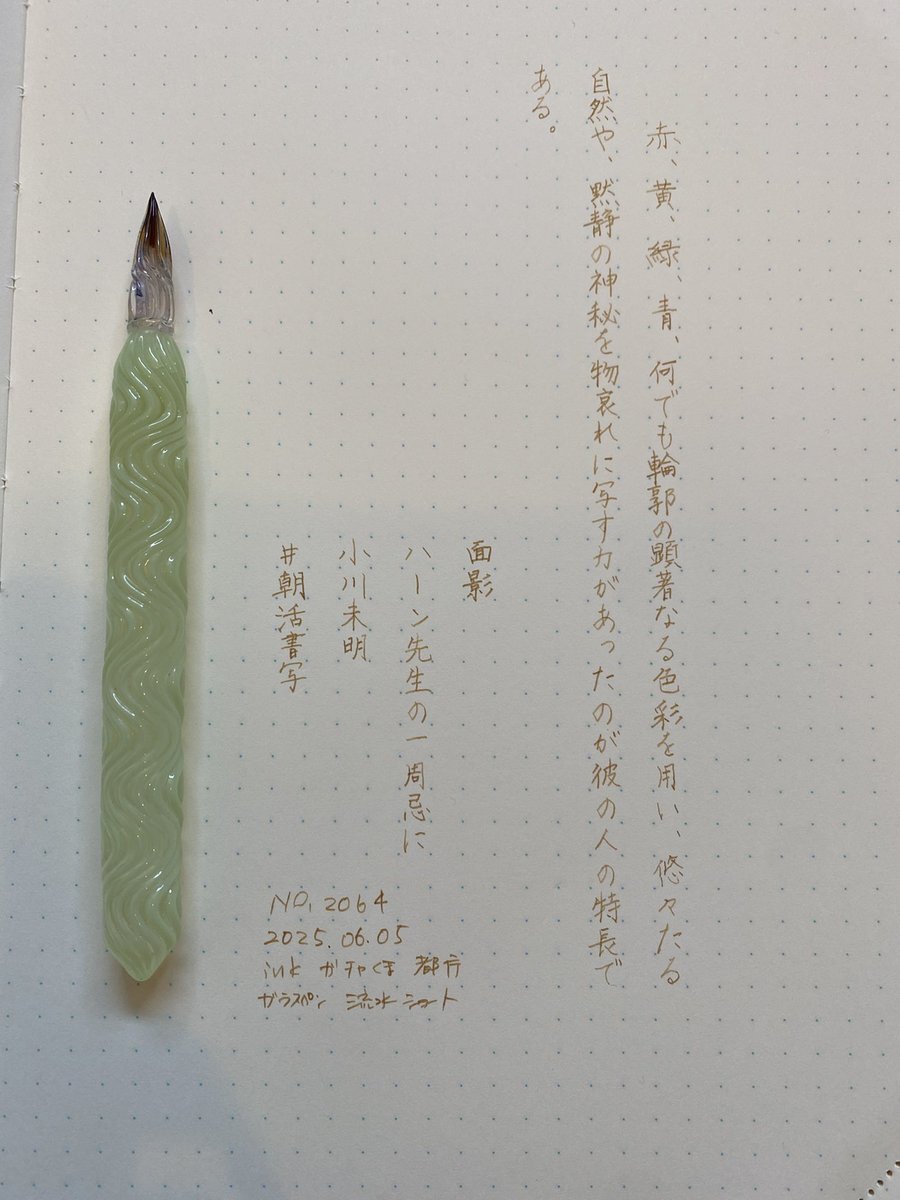 赤、黄、緑、青、何でも輪郭の顕著なる色彩を用い、悠々たる
自然や、黙静の神秘を物哀れに写す力があったのが彼の人の特長で
ある。
面影
ハーン先生の一周忌に
小川未明
#朝活書写
NO, 2064
2025.06.05
ink ガチャくま 都庁
ガラスペン 流水 ショート